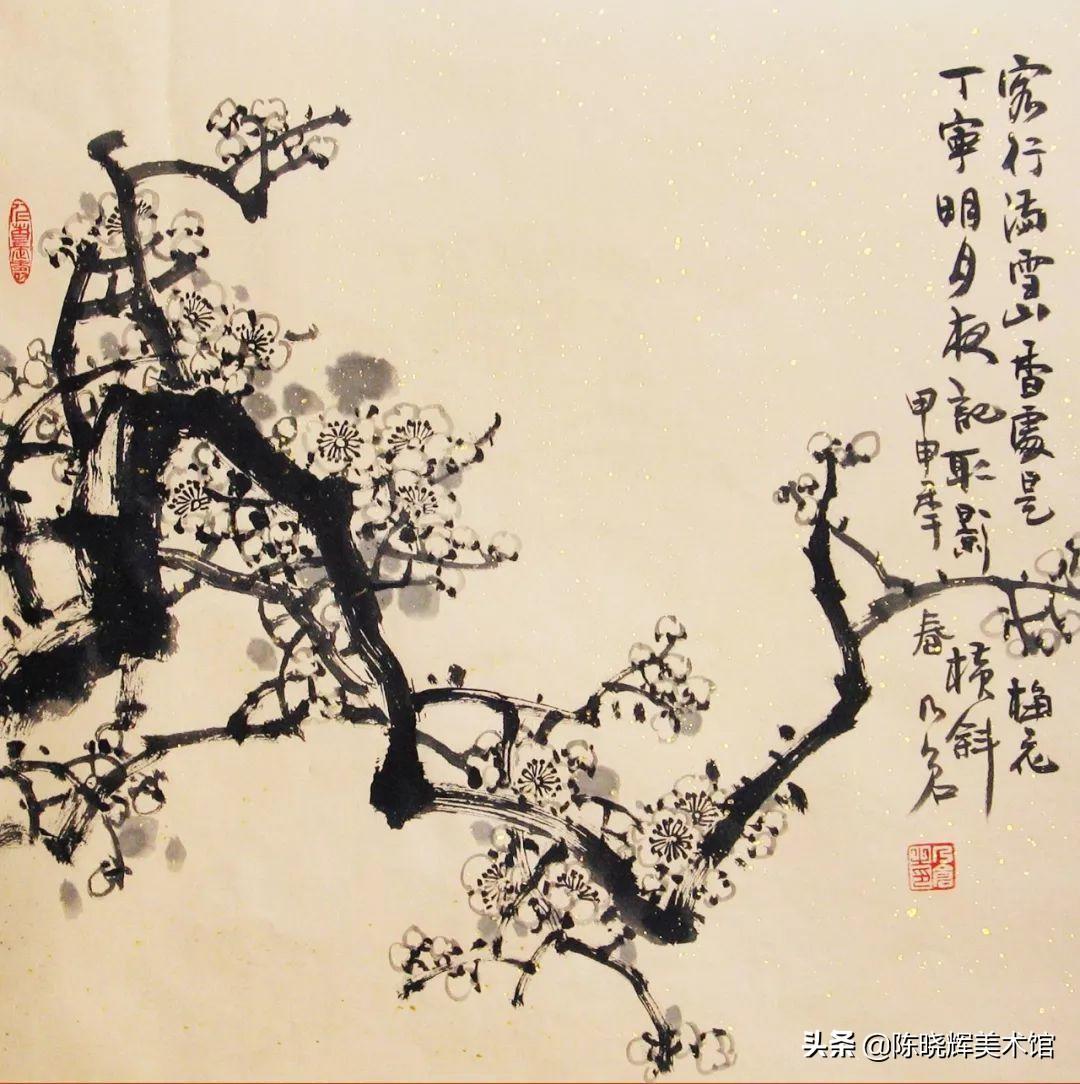 客行满雪山香處是梅花
丁寧明月夜記取影横斜
甲申年春乃仓
头条 @陈晓辉美术馆